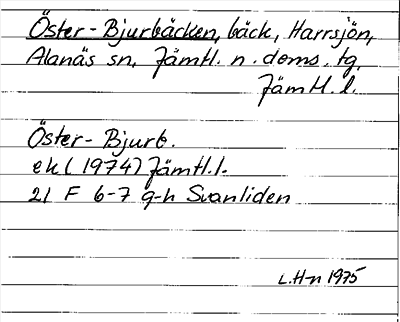 Öster-Bjurbäcken, bäck, Harrsjön,
Alanäs sn, Jämtl. n. doms. tg.
Jämtl. l.
Öster-Bjurb.
ek (1974) Jämtl.l.
21 F 6-7 g-h Svanliden
L.H-n 1975